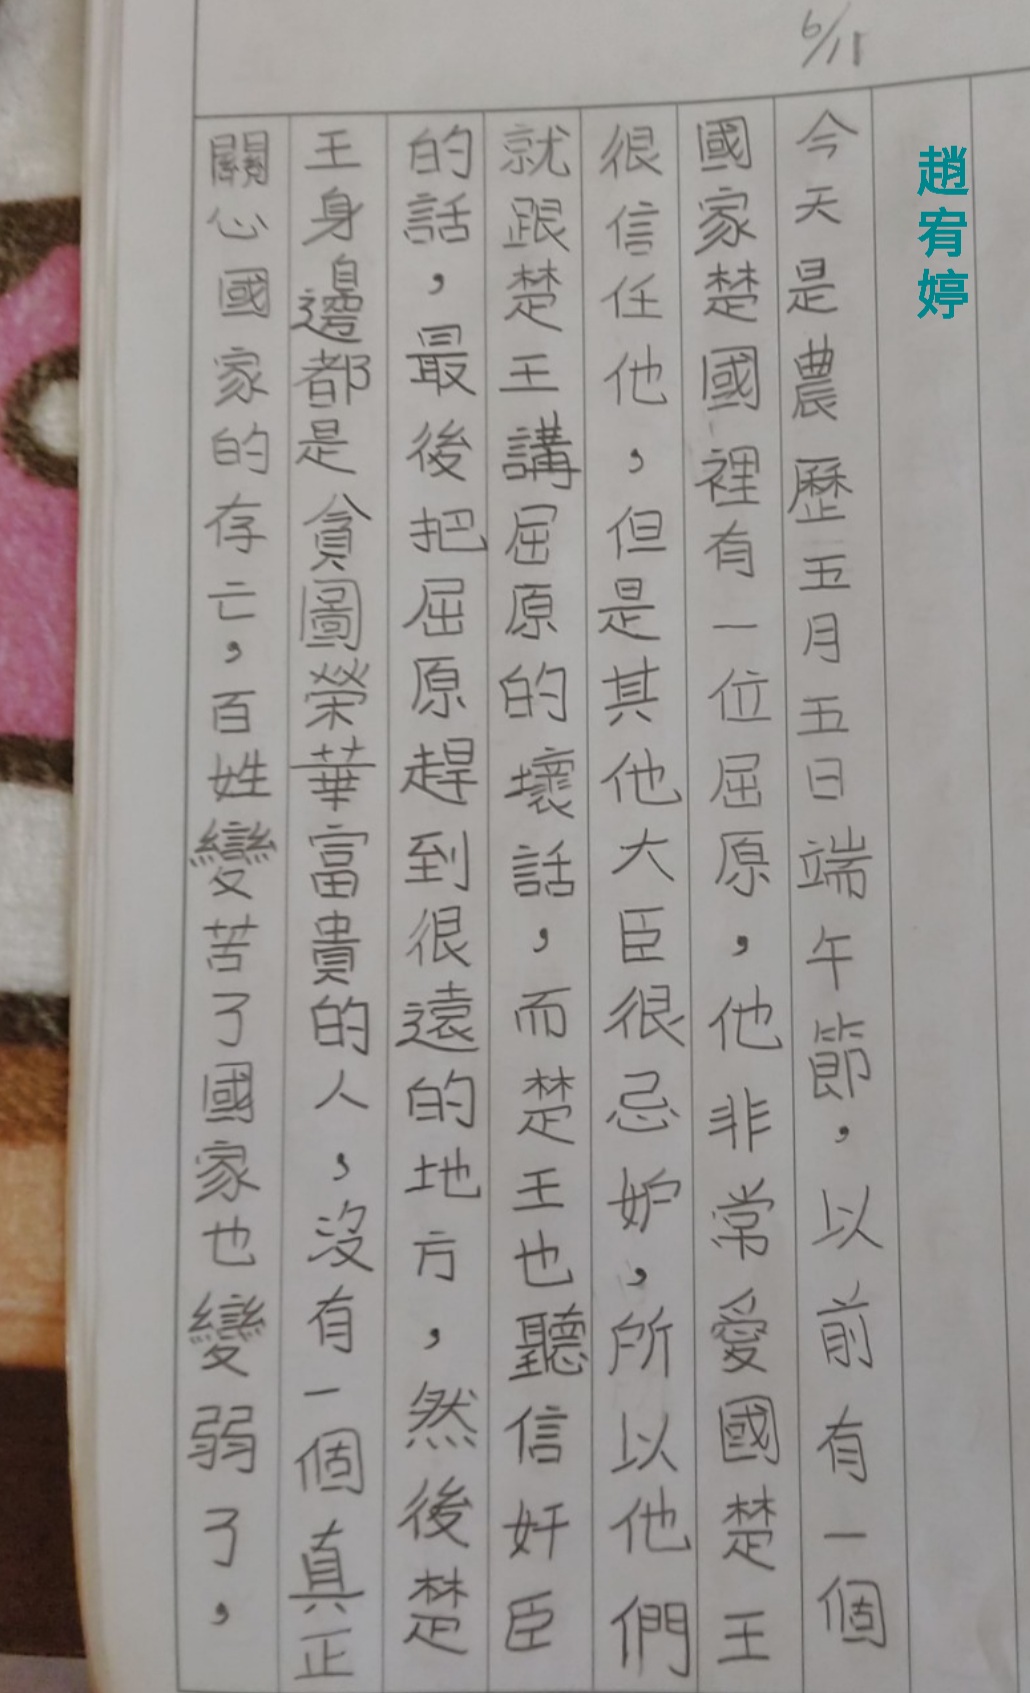 6/18
趙宥婷
今天是農歷五月五日端午節，以前有一個
國家楚國裡有一位屈原，他非常愛國楚王
很信任他，但是其他大臣很忌妒，所以他們
就跟楚王講屈原的壞話，而楚王也聽信奸臣
的話，最後把屈原趕到很遠的地方，然後楚
王身邊都是貪圖榮華富貴的人，沒有一個真正
關心國家的存亡，百姓變苦了國家也變弱了，